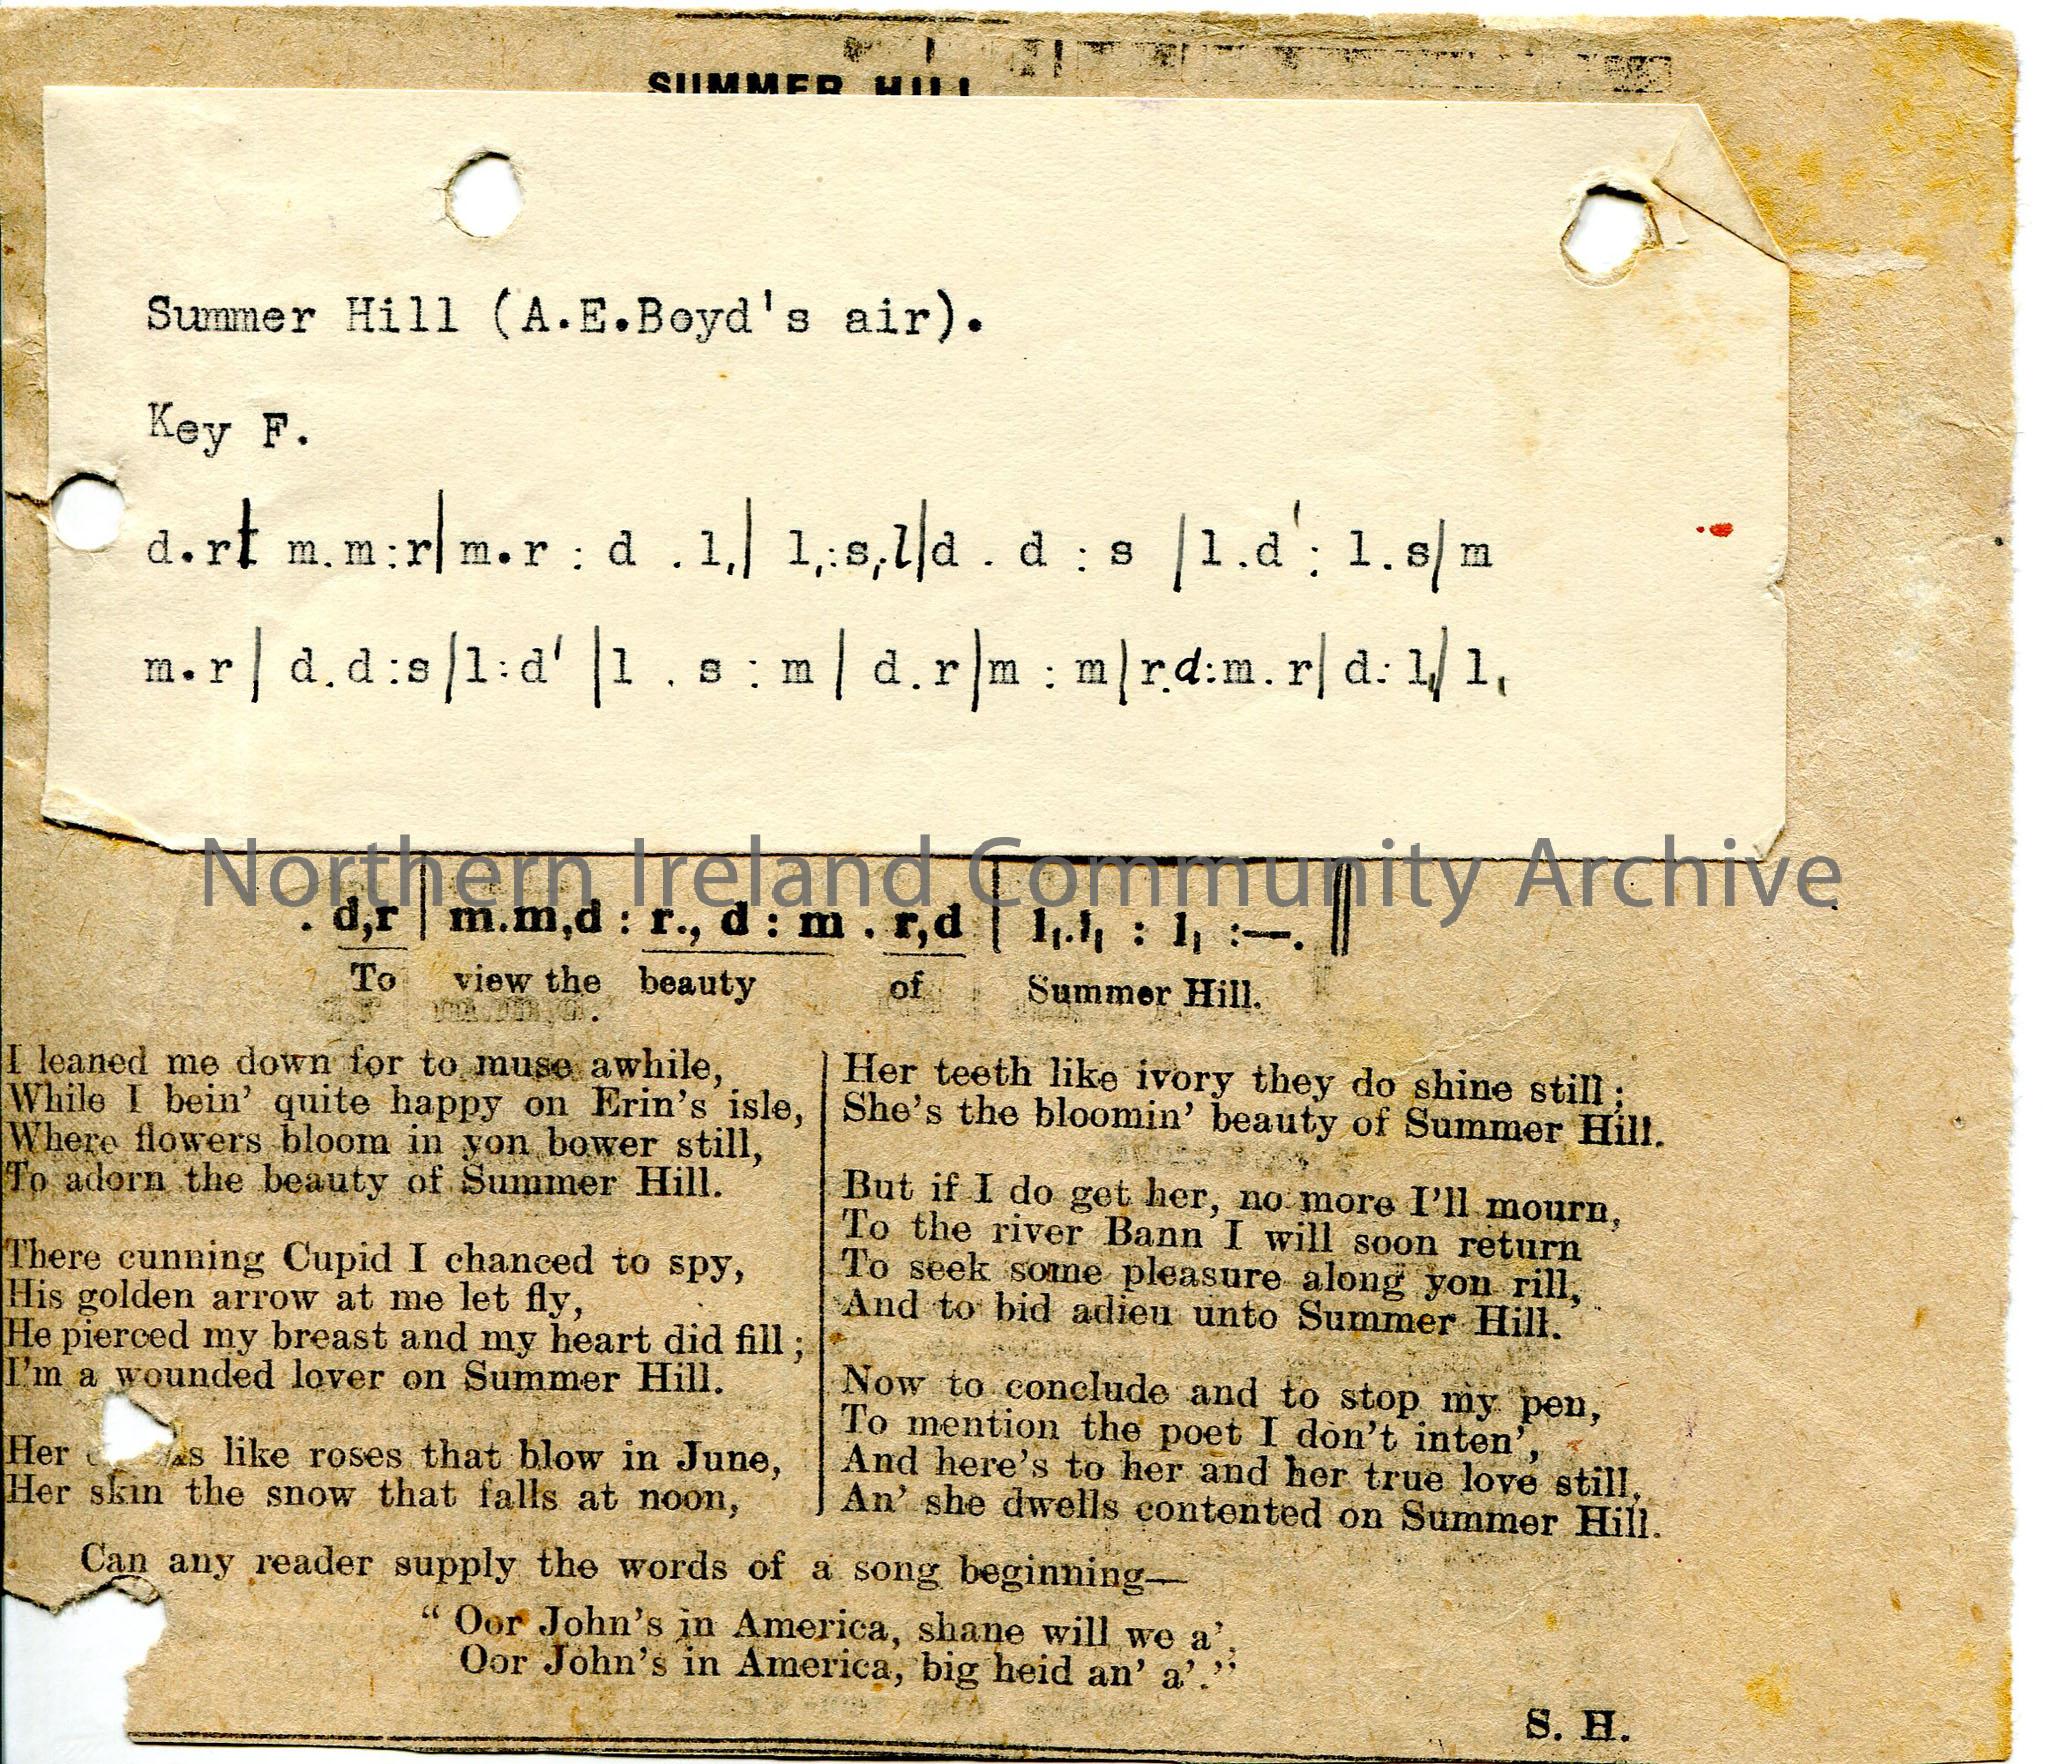 SUMMER HILL
Summer Hill (A.E.Boyd's air).
Key F.
d.r| m.m:r|m.r : d .l,| l,:s,.l|d . d : s |l.d' : l.s|m
m.r| d.d:s|l:d' |l . s : m| d.r|m : m|r.d:m.r| d: l,| l,
Northern Ireland Community Archive
. d,r | m.m,d : r., d : m . r,d | l,.l, : l, :—. ||
To view the beauty of Summer Hill.
I leaned me down for to muse awhile,
While I bein' quite happy on Erin's isle,
Where flowers bloom in yon bower still,
To adorn the beauty of Summer Hill.
There cunning Cupid I chanced to spy,
His golden arrow at me let fly,
He pierced my breast and my heart did fill ;
I'm a wounded lover on Summer Hill.
Her like roses that blow in June,
Her skin the snow that falls at noon,
Her teeth like ivory they do shine still ;
She's the bloomin' beauty of Summer Hill.
But if I do get her, no more I'll mourn,
To the river Bann I will soon return
To seek some pleasure along yon rill,
And to bid adieu unto Summer Hill.
Now to conclude and to stop my pen,
To mention the poet I don't inten',
And here's to her and her true love still,
An' she dwells contented on Summer Hill.
Can any reader supply the words of a song beginning—
" Oor John's in America, shane will we a',
Oor John's in America, big heid an' a'."
S. H.